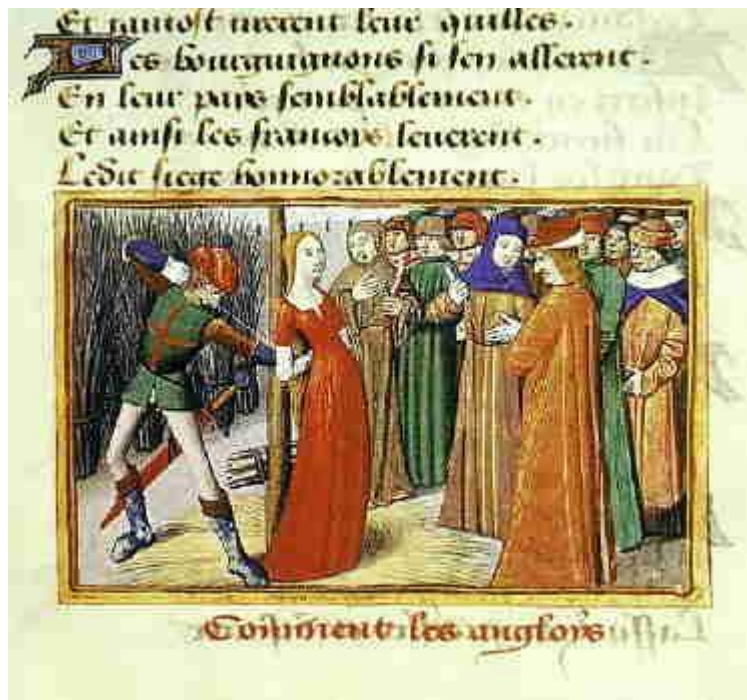 Et tantost leverent leur quilles.
Les bourguignons si sen allerent.
En leur pays semblablement.
Et ainsi les francoys leverent.
Ledit siege honnorablement.
Comment les angloys